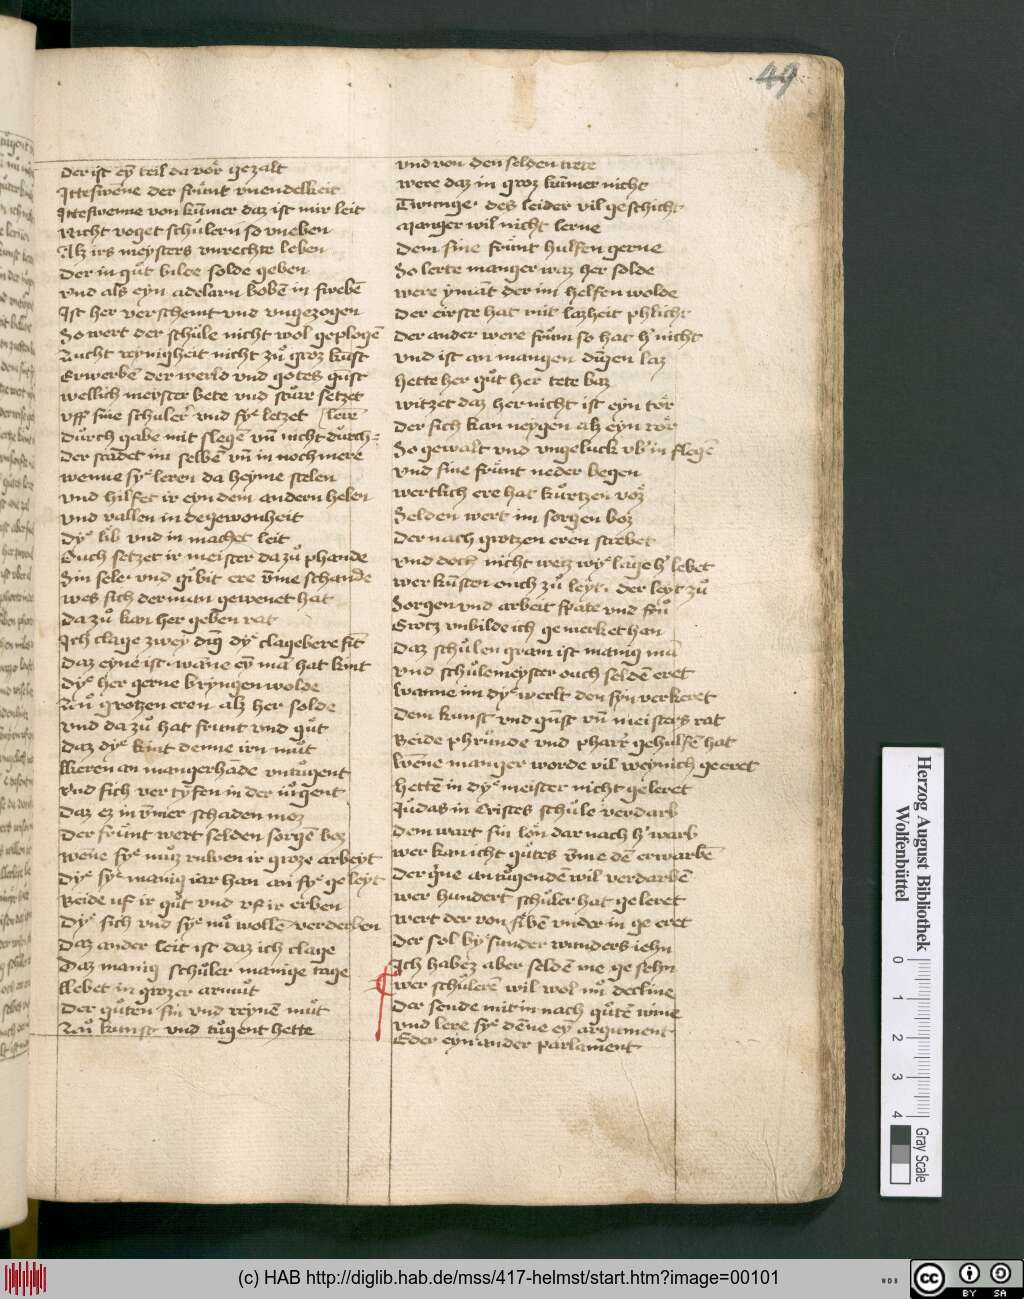 49
Der ist eȳ teil da vor gezalt
Itteswēne der frunt vnendelkeit
Itteswenne von kūmer daz ist mir leit
Nicht voget schulern so vneben
Alz irs meysters vnrechte leben
Der in gůt bilde solde geben
vnd als eyn adelarn bobē in swebē
Ist her verschemt vnd vngezogen
So wert der schůle nicht wol geplogē
Zucht reynigheit nicht zů groz kůst
Erwerbē der werld vnd gotes gūst
wellich meyster bete vnd stůrr setzet
vff sine schuler vnd sye letzet lere
Durch gabe mit slegē vn̄ nicht durch
Der scadet im selbē vn̄ in noch mere
wenne sye leren da heyme stelen
vnd hilfet ir eyn dem andern helen
vnd vallen in degewonheit
Dye lib vnd in machet leit
Ouch setzet ir meister da zů phande
Sin sele vnd gibit ere vm̄e schande
wes sich der man gewenet hat
Da zů kan her geben rat
Ich clage zwey ding dye clagebere sīt
Daz eyne ist wāne eȳ mā hat kint
Dye her gerne bryngen wolde
Zců grotzen eren alz her solde
vnd da zů hat frunt vnd gůt
Daz dye kint denne irn můt
Keren an mangerhāde vntugent
vnd sich vertyfen in der iugent
Daz ez in vm̄er schaden moz
Der frunt wert selden sorgē boz
wēne sye muz rulven ir groze arbeyt
Dye sye manig iar han an sye geleyt
Beide uf ir gůt vnd vf ir erben
Dye sich vnd sye nů wollē verderben
Daz ander leit ist daz ich clage
Daz manig schůler manige tage
Lebet in grozer armůt
Der gůten sin vnd reynē můt
Zců kunst vnd tugent hette
vnd von den selden trete
were daz in groz kūmer nicht
Twunge des leider vil geschicht
Manger wil nicht lerne
Dem sine frunt hulfen gerne
So lerte manger waz her solde
were ymāt der im helfen wolde
Der eirste hat mit lazheit phlicht
Der ander were frum so hat h' nicht
vnd ist an mangen dingen laz
hette her gůt her tete baz
witzet daz her nicht ist eyn tor
Der sich kan neygen alz eyn ror
So gewalt vnd vngeluck vb' in slegē
vnd sine frunt neder legen
wertlich ere hat kurtzen voz
Selden wert im sorgen boz
Der nach grotzen eren strebet
vnd doch nicht weiz wye lāge h' lebet
wer kunsten ouch zů leyt der leyt zů
Sorgen vnd arbeit spate vnd frů
Grotz vnbilde ich gemerket han
Daz schůlen gram ist manig mā
vnd schůlemeyster ouch seldē eret
wanne im dye werlt den syn verkeret
Dem kunst vnd gūst vn̄ meisters rat
Beide phrunde vnd pharr gehulfē hat
wēne manger worde vil weynich geeret
hettē in dye meister nicht geleret
Judas in Cristes schůle verdarb
Dem wart sin lon dar nach h' warb
wer kan icht gůtes vm̄e dē erwarbē
Der gne an tugendē wil verdarbē
wer hundert schuler hat geleret
wert der von sibē vnder in geeret
Der sol bye sunder wunders iehn
Ich habez aber seldē me gesehn
wer schulerē wil wol nů decline
Der sende mit in nach gůtē wine
vnd lere sye dēne eȳ argument
Eder eyn ander parlament
Herzog August Bibliothek
Wolfenbüttel
0 1 2 3 4
Gray Scale
(c) HAB http://diglib.hab.de/mss/417-helmst/start.htm?image=00101
WDB
cc BY SA